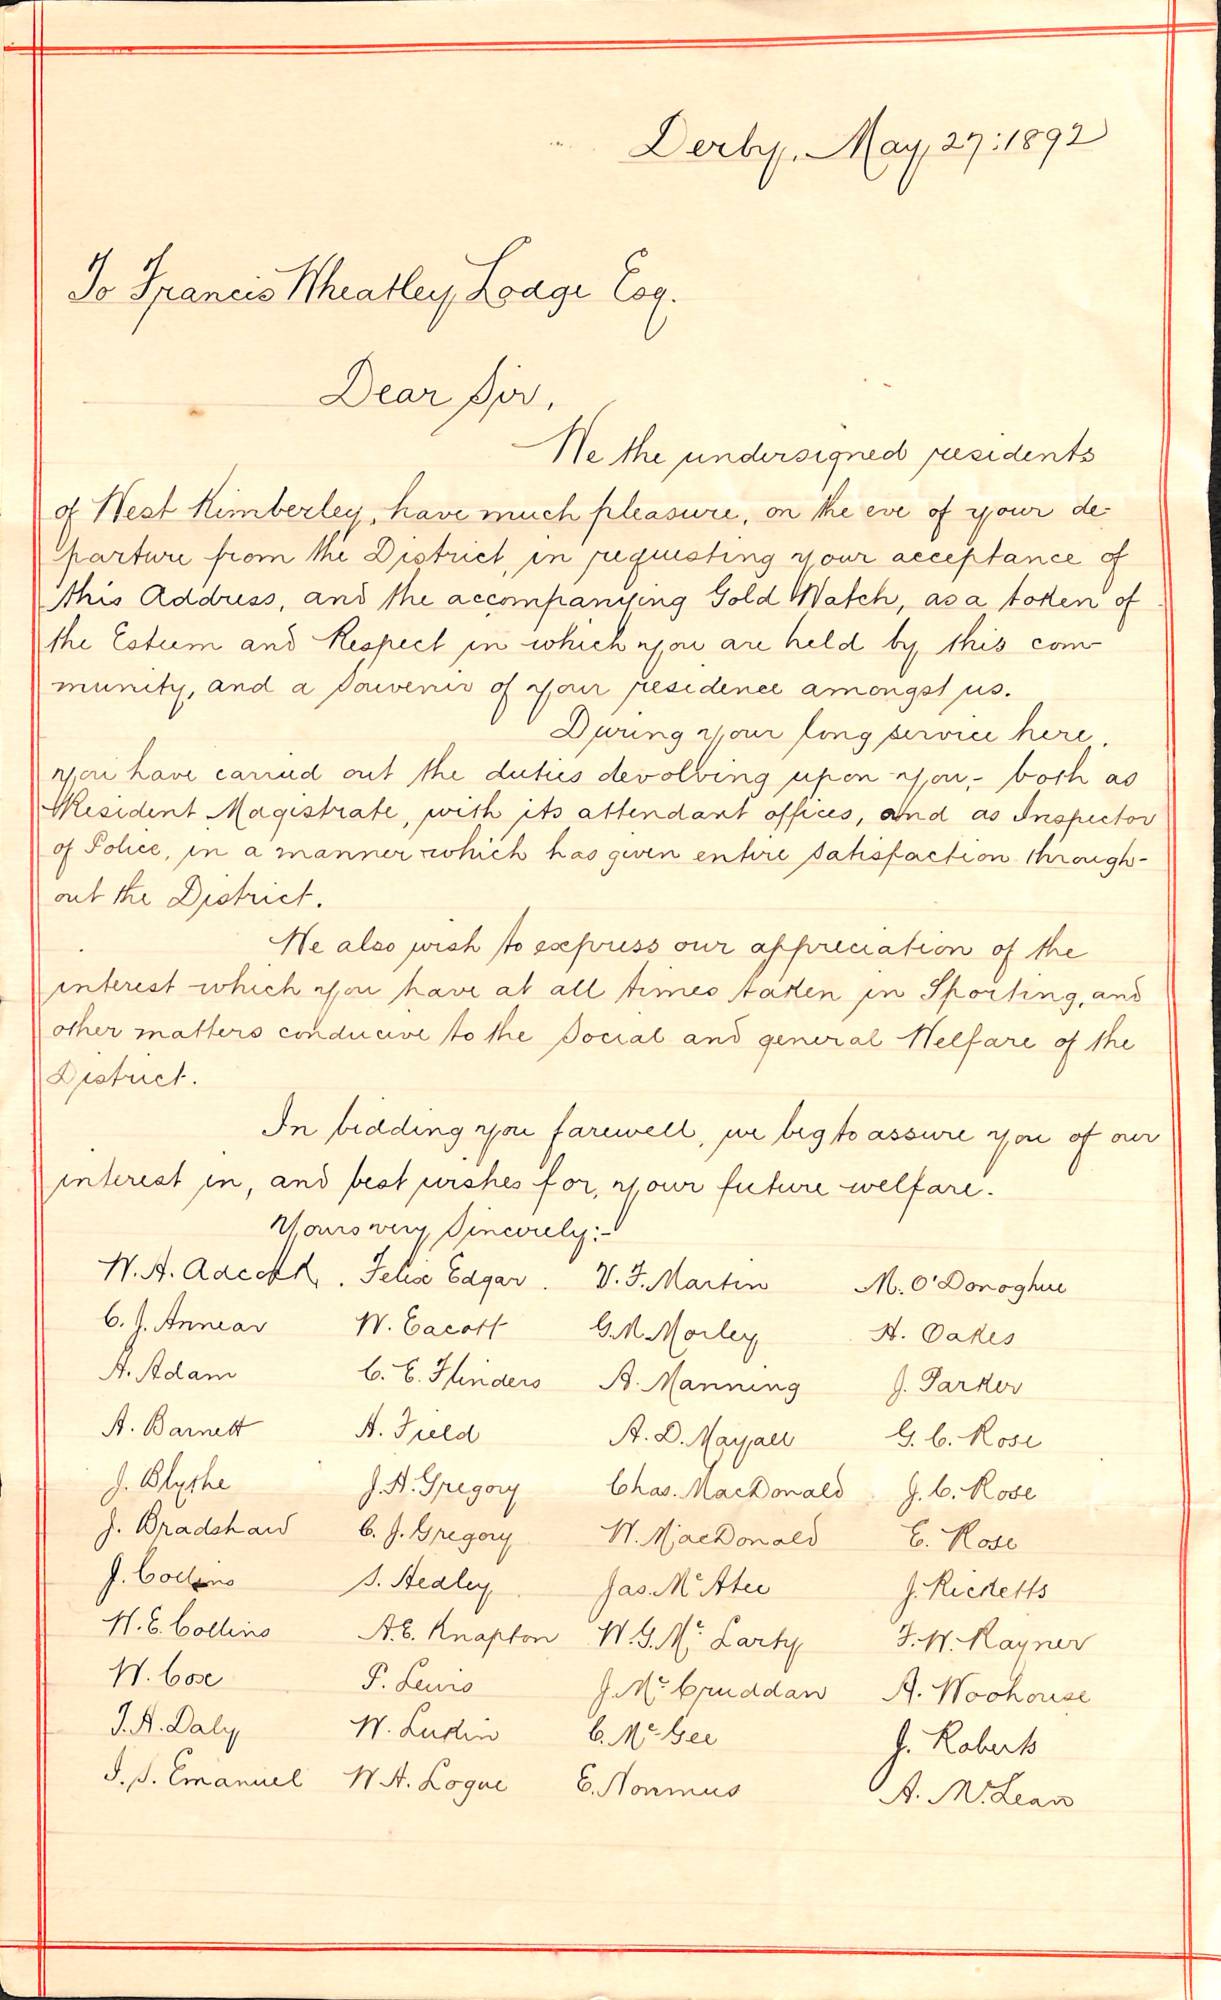 Derby, May 27:1892
To Francis Wheatley Lodge Esq.
Dear Sir,
We the undersigned residents
of West Kimberley, have much pleasure, on the eve of your de-
parture from the District, in requesting your acceptance of
this Address, and the accompanying Gold Watch, as a token of
the Esteem and Respect in which you are held by this com-
munity, and a Souvenir of your residence amongst us.
During your long service here,
you have carried out the duties devolving upon you,- both as
Resident Magistrate, with its attendant offices, and as Inspector
of Police, in a manner which has given entire satisfaction through-
out the District.
We also wish to express our appreciation of the
interest which you have at all times taken in Sporting, and
other matters conducive to the Social and general Welfare of the
District.
In bidding you farewell, we beg to assure you of our
interest in, and best wishes for, your future welfare.
Yours very Sincerely:-
W. A. Adcock. Felix Edgar. V. F. Martin M. O'Donoghue
C. J. Annear W. Eacott G. M. Morley H. Oakes
A. Adam C. E. Flinders A. Manning J. Parker
A. Barnett H. Field A. D. Mayall G. C. Rose
J. Blythe J. H. Gregory Chas. MacDonald J. C. Rose
J. Bradshaw C. J. Gregory W. MacDonald E. Rose
J. Collins S. Hedley Jas. McAtee J. Ricketts
H. E. Collins A. E. Knapton W. G. Mc Larty F. W. Rayner
W. Cox P. Lewis J. Mc Cruddan A. Woohouse
T. H. Daly W. Lukin C. McGee J. Roberts
I. S. Emanuel W. A. Logue E. Nommus A. McLean